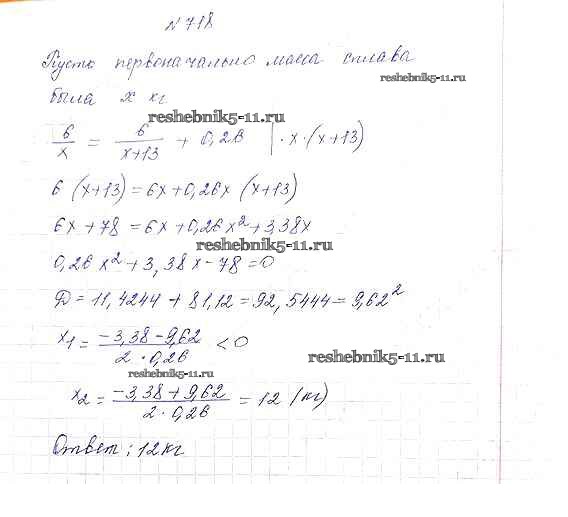 №718
Пусть первоначально масса сплава
reshebnik5-11.ru
была x кг
reshebnik5-11.ru
6/x = 6/(x+13) + 0,26 | · x · (x+13)
6 (x+13) = 6x + 0,26x (x+13)
6x + 78 = 6x + 0,26x² + 3,38x
reshebnik5-11.ru
0,26x² + 3,38x - 78 = 0
D = 11,4244 + 81,12 = 92,5444 = 9,62²
x₁ = (-3,38 - 9,62)/(2 · 0,26) < 0
reshebnik5-11.ru
reshebnik5-11.ru
x₂ = (-3,38 + 9,62)/(2 · 0,26) = 12 (кг)
Ответ: 12кг